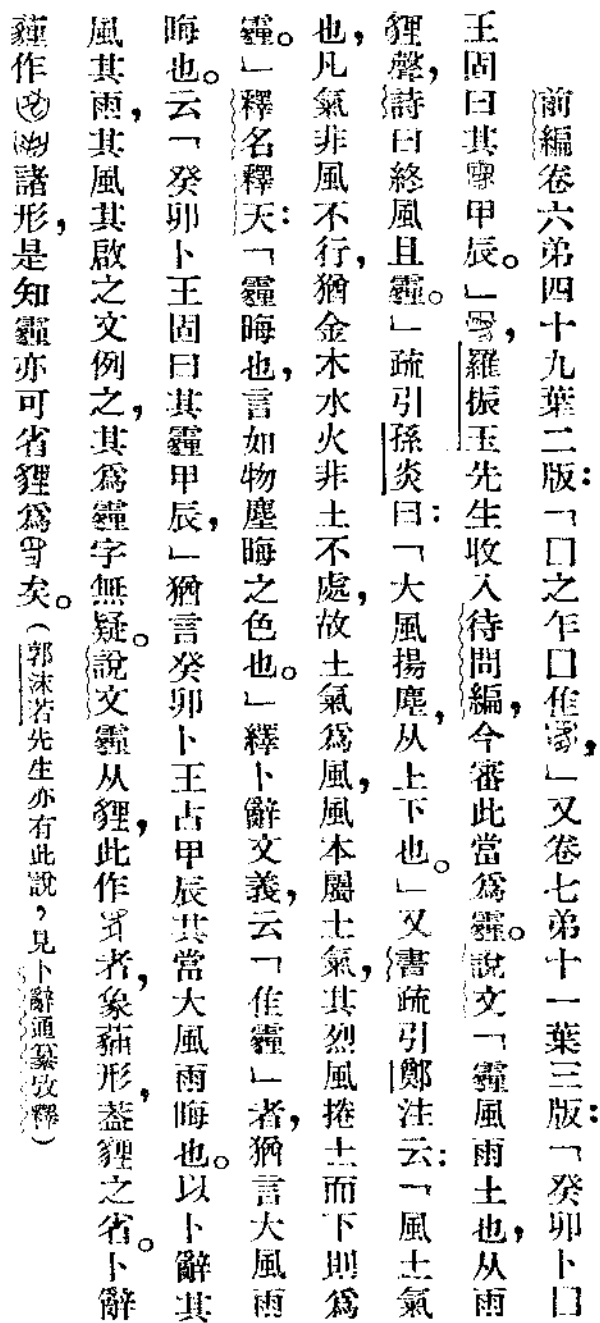 前編卷六弟四十九葉二版：「囗之乍囗隹，」又卷七弟十一葉三版：「癸卯卜囗
王固曰其甲辰。」，羅振玉先生收入待問編，今審此當爲霾。說文「霾風雨土也，从雨
貍聲，詩曰終風且霾。」疏引孫炎曰：「大風揚塵，从上下也。」又書疏引鄭注云：「風土氣
也，凡氣非風不行，猶金木水火非土不處，故土氣爲風，風本屬土氣，其烈風捲土而下則爲
霾。」釋名釋天：「霾晦也，言如物塵晦之色也。」繹卜辭文義，云「隹霾」者，猶言大風雨
晦也。云「癸卯卜王固曰其霾甲辰，」猶言癸卯卜王占甲辰其當大風雨晦也。以卜辭其
風其雨，其風其啟之文例之，其爲霾字無疑。說文霾从貍，此作者，象貓形，葢貍之省。卜辭
作諸形，是知霾亦可省貍爲矣。（郭沫若先生亦有此說，見卜辭通纂攷釋）